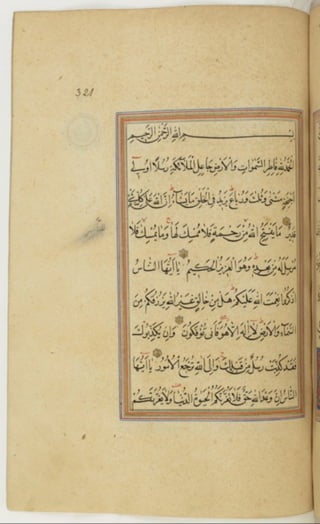 321
بسم الله الرحمن الرحيم
الحمد لله فاطر السموات والارض جاعل الملائكة رسلا اولي
اجنحة مثنى وثلث ورباع يزيد في الخلق ما يشاء ان الله على كل شئ
قدير ما يفتح الله للناس من رحمة فلا ممسك لها وما يمسك فلا
مرسل له من بعده وهو العزيز الحكيم يا ايها الناس
اذكروا نعمت الله عليكم هل من خالق غير الله يرزقكم من
السماء والارض لا اله الا هو فانى تؤفكون وان يكذبوك
فقد كذبت رسل من قبلك والى الله ترجع الامور يا ايها
الناس ان وعد الله حق فلا تغرنكم الحيوة الدنيا ولا يغرنكم